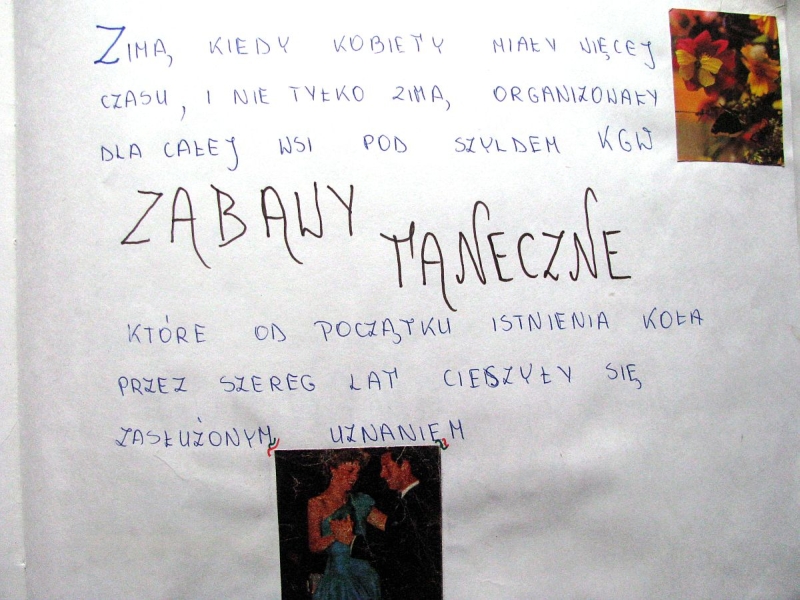 ZIMĄ, KIEDY KOBIETY MIAŁY WIĘCEJ
CZASU, I NIE TYLKO ZIMĄ, ORGANIZOWAŁY
DLA CAŁEJ WSI POD SZYLDEM KGW
ZABAWY
TANECZNE
KTÓRE OD POCZĄTKU ISTNIENIA KOŁA
PRZEZ SZEREG LAT CIESZYŁY SIĘ
ZASŁUŻONYM UZNANIEM